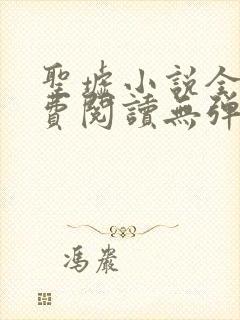 聖墟小説全
費閱讀無彈
馮嚴